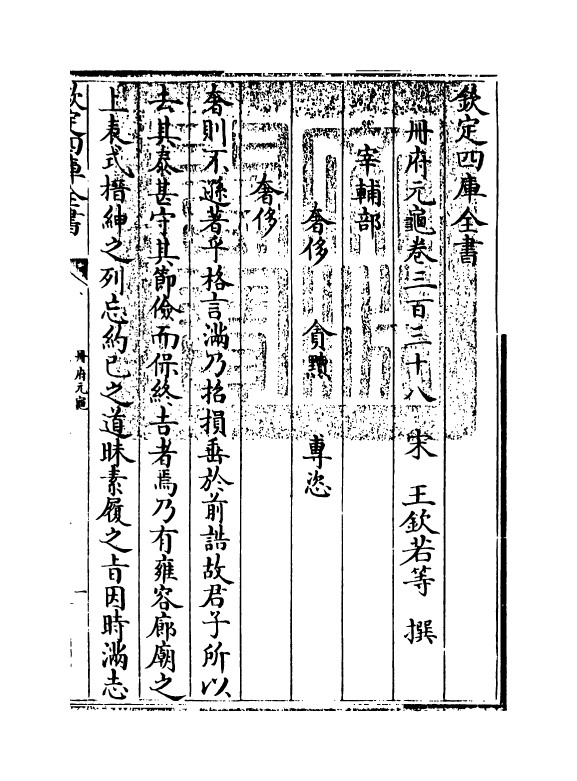 欽定四庫全書
冊府元龜卷三百三十八　宋　王欽若等　撰
宰輔部
奢侈　貪黷　專恣
奢侈
奢則不遜著乎格言滿乃招損垂於前誥故君子所以
去其泰甚守其節儉而保終吉者焉乃有雍容廊廟之
上表式搢紳之列忘約己之道昧素履之旨因時滿志
欽定四庫全書
冊府元龜
一